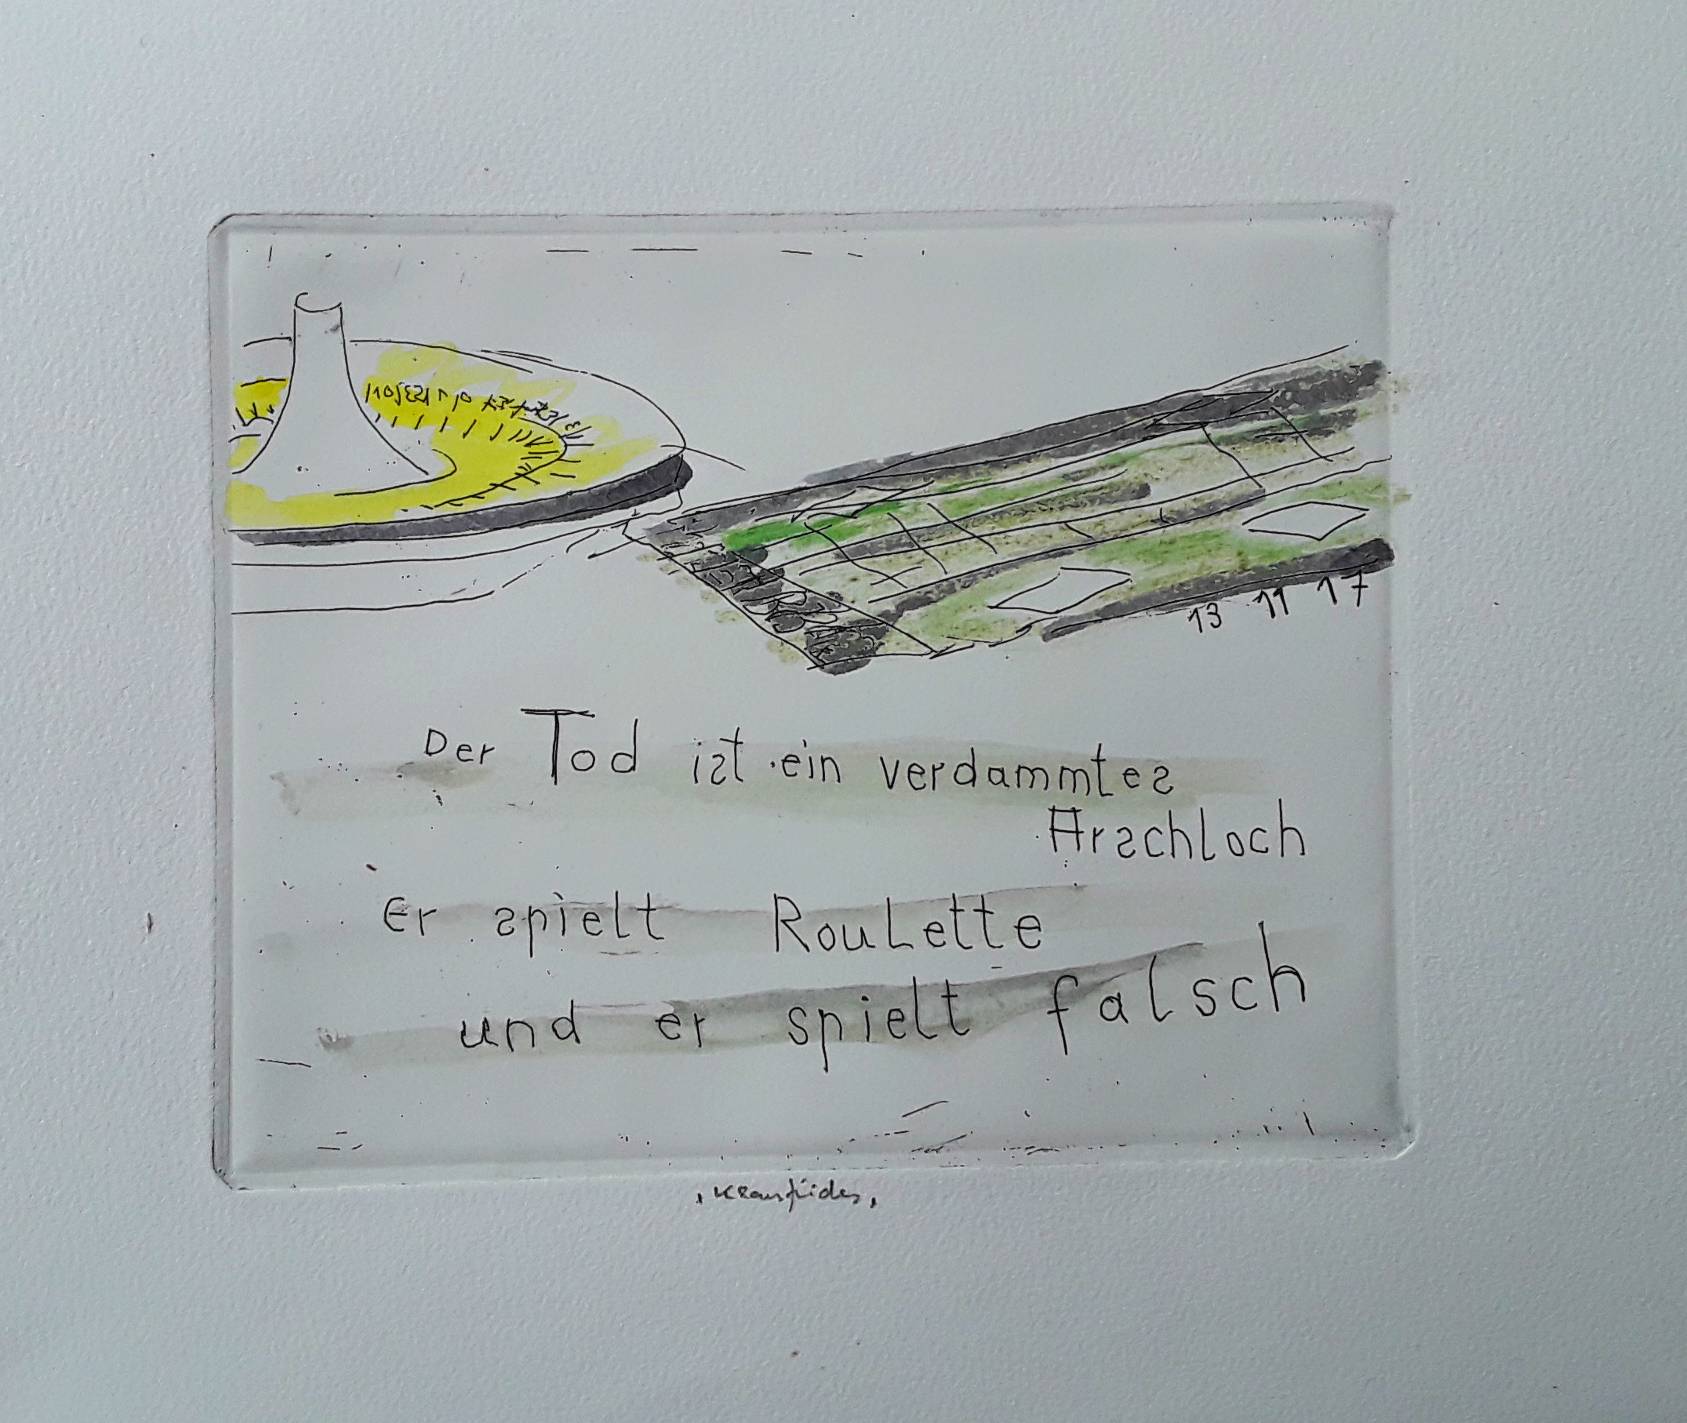 13 11 17
Der Tod ist ein verdammtes
Arschloch
Er spielt Roulette
und er spielt falsch